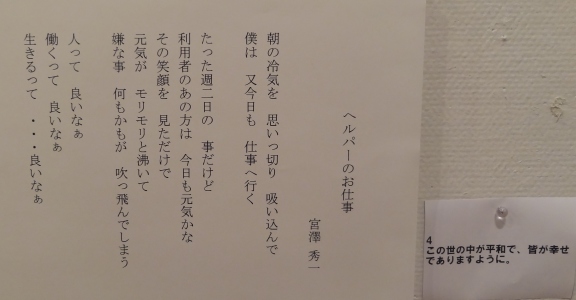 ヘルパーのお仕事
宮澤 秀一
朝の冷気を 思いっ切り 吸い込んで
僕は 又今日も 仕事へ行く
たった週二日の 事だけど
利用者のあの方は 今日も元気かな
その笑顔を 見ただけで
元気が モリモリと沸いて
嫌な事 何もかもが 吹っ飛んでしまう
人って 良いなぁ
働くって 良いなぁ
生きるって ・・・良いなぁ
4
この世の中が平和で、皆が幸せ
でありますように。